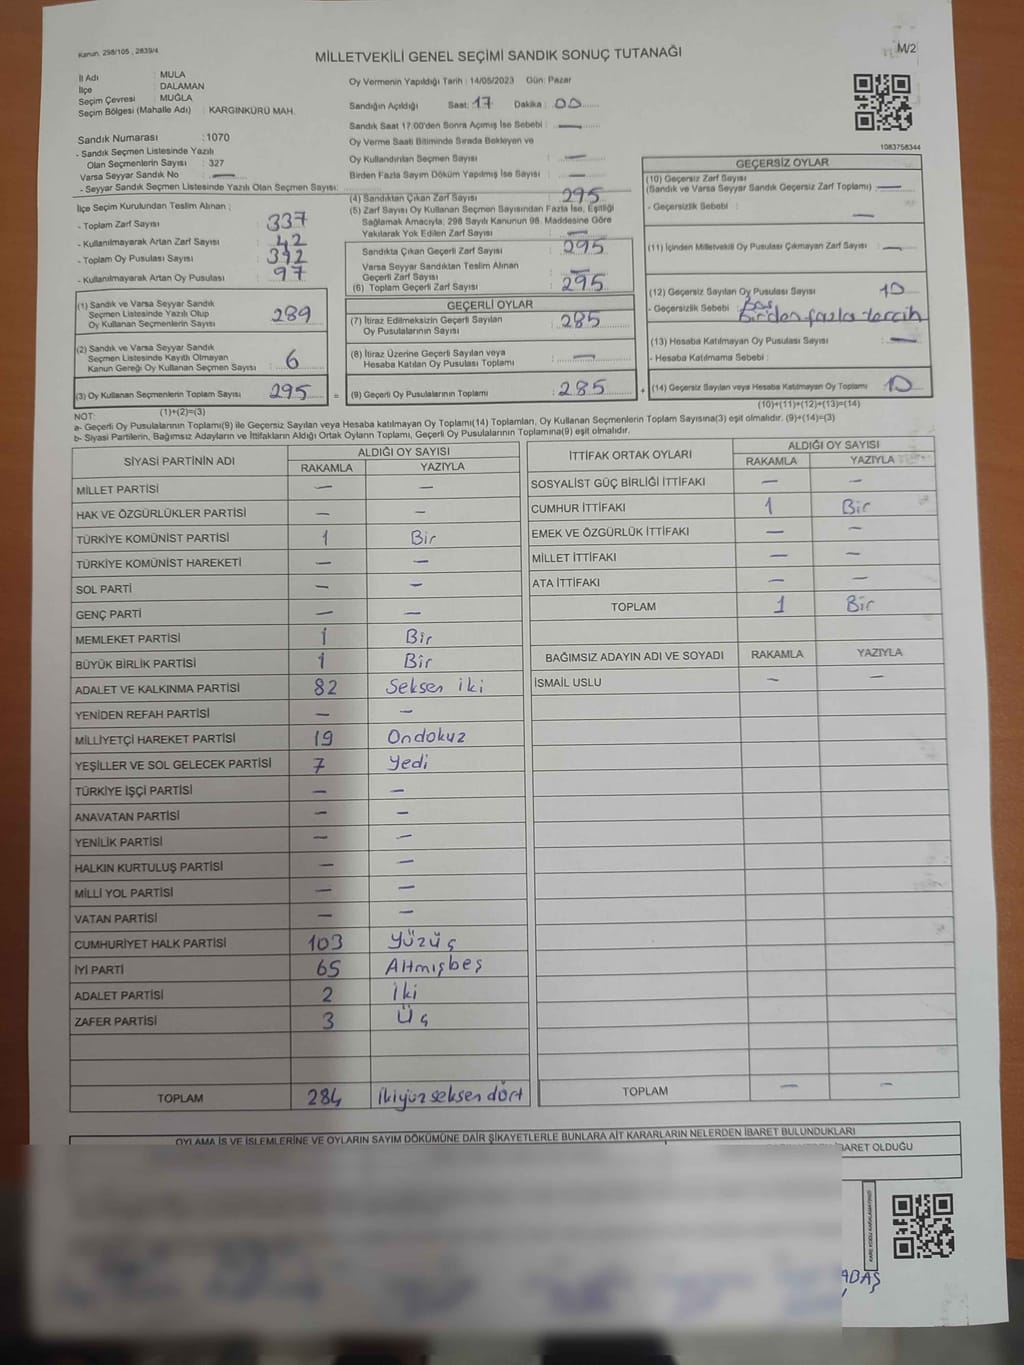 Kanun, 298/105 , 2839/4
MİLLETVEKİLİ GENEL SEÇİMİ SANDIK SONUÇ TUTANAĞI
M/2
İl Adı : MULA
İlçe : DALAMAN
Seçim Çevresi : MUĞLA
Seçim Bölgesi (Mahalle Adı) : KARGINKÜRÜ MAH.
Sandık Numarası :1070
- Sandık Seçmen Listesinde Yazılı
Olan Seçmenlerin Sayısı : 327
Varsa Seyyar Sandık No : —
- Seyyar Sandık Seçmen Listesinde Yazılı Olan Seçmen Sayısı:
Oy Vermenin Yapıldığı Tarih : 14/05/2023 Gün: Pazar
Sandığın Açıldığı Saat: 17 Dakika : 00
Sandık Saat 17.00'den Sonra Açımış İse Sebebi : —
Oy Verme Saati Bitiminde Sırada Bekleyen ve
Oy Kullandırılan Seçmen Sayısı : —
Birden Fazla Sayım Döküm Yapılmış İse Sayısı : —
1083758344
İlçe Seçim Kurulundan Teslim Alınan ;
- Toplam Zarf Sayısı : 337
- Kullanılmayarak Artan Zarf Sayısı : 42
- Toplam Oy Pusulası Sayısı : 392
- Kullanılmayarak Artan Oy Pusulası : 97
(1) Sandık ve Varsa Seyyar Sandık
Seçmen Listesinde Yazılı Olup
Oy Kullanan Seçmenlerin Sayısı : 289
(2) Sandık ve Varsa Seyyar Sandık
Seçmen Listesinde Kayıtlı Olmayan
Kanun Gereği Oy Kullanan Seçmen Sayısı : 6
(3) Oy Kullanan Seçmenlerin Toplam Sayısı : 295 =
(1)+(2)=(3)
(4) Sandıktan Çıkan Zarf Sayısı : 295
(5) Zarf Sayısı Oy Kullanan Seçmen Sayısından Fazla İse, Eşitliği
Sağlamak Amacıyla; 298 Sayılı Kanunun 98. Maddesine Göre
Yakılarak Yok Edilen Zarf Sayısı : —
Sandıkta Çıkan Geçerli Zarf Sayısı : 295
Varsa Seyyar Sandıktan Teslim Alınan
Geçerli Zarf Sayısı : —
(6) Toplam Geçerli Zarf Sayısı : 295
GEÇERLİ OYLAR
(7) İtiraz Edilmeksizin Geçerli Sayılan
Oy Pusulalarının Sayısı : 285
(8) İtiraz Üzerine Geçerli Sayılan veya
Hesaba Katılan Oy Pusulası Toplamı : —
(9) Geçerli Oy Pusulalarının Toplamı : 285 +
GEÇERSİZ OYLAR
(10) Geçersiz Zarf Sayısı
(Sandık ve Varsa Seyyar Sandık Geçersiz Zarf Toplamı) : —
- Geçersizlik Sebebi : —
(11) İçinden Milletvekili Oy Pusulası Çıkmayan Zarf Sayısı : —
(12) Geçersiz Sayılan Oy Pusulası Sayısı : 10
- Geçersizlik Sebebi : Boş
Birden fazla tercih
(13) Hesaba Katılmayan Oy Pusulası Sayısı : —
- Hesaba Katılmama Sebebi :
(14) Geçersiz Sayılan veya Hesaba Katılmayan Oy Toplamı : 10
(10)+(11)+(12)+(13)=(14)
NOT:
a- Geçerli Oy Pusulalarının Toplamı(9) ile Geçersiz Sayılan veya Hesaba katılmayan Oy Toplamı(14) Toplamları, Oy Kullanan Seçmenlerin Toplam Sayısına(3) eşit olmalıdır. (9)+(14)=(3)
b- Siyasi Partilerin, Bağımsız Adayların ve İttifakların Aldığı Ortak Oyların Toplamı, Geçerli Oy Pusulalarının Toplamına(9) eşit olmalıdır.
SİYASİ PARTİNİN ADI ALDIĞI OY SAYISI
RAKAMLA YAZIYLA
MİLLET PARTİSİ — —
HAK VE ÖZGÜRLÜKLER PARTİSİ — —
TÜRKİYE KOMÜNİST PARTİSİ 1 Bir
TÜRKİYE KOMÜNİST HAREKETİ — —
SOL PARTİ — —
GENÇ PARTİ — —
MEMLEKET PARTİSİ 1 Bir
BÜYÜK BİRLİK PARTİSİ 1 Bir
ADALET VE KALKINMA PARTİSİ 82 Seksen iki
YENİDEN REFAH PARTİSİ — —
MİLLİYETÇİ HAREKET PARTİSİ 19 Ondokuz
YEŞİLLER VE SOL GELECEK PARTİSİ 7 Yedi
TÜRKİYE İŞÇİ PARTİSİ — —
ANAVATAN PARTİSİ — —
YENİLİK PARTİSİ — —
HALKIN KURTULUŞ PARTİSİ — —
MİLLİ YOL PARTİSİ — —
VATAN PARTİSİ — —
CUMHURİYET HALK PARTİSİ 103 Yüzüç
İYİ PARTİ 65 Altmışbeş
ADALET PARTİSİ 2 İki
ZAFER PARTİSİ 3 Üç
TOPLAM 284 İkiyüzseksendört
İTTİFAK ORTAK OYLARI ALDIĞI OY SAYISI
RAKAMLA YAZIYLA
SOSYALİST GÜÇ BİRLİĞİ İTTİFAKI — —
CUMHUR İTTİFAKI 1 Bir
EMEK VE ÖZGÜRLÜK İTTİFAKI — —
MİLLET İTTİFAKI — —
ATA İTTİFAKI — —
TOPLAM 1 Bir
BAĞIMSIZ ADAYIN ADI VE SOYADI RAKAMLA YAZIYLA
İSMAİL USLU — —
TOPLAM — —
OYLAMA İŞ VE İŞLEMLERİNE VE OYLARIN SAYIM DÖKÜMÜNE DAİR ŞİKAYETLERLE BUNLARA AİT KARARLARIN NELERDEN İBARET BULUNDUKLARI
İBARET OLDUĞU
ADAŞ